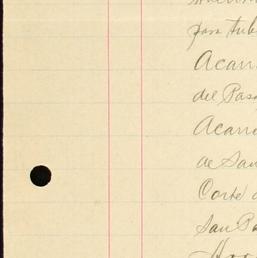 para tub
Acarr
del Pas
Acarr
de San
Corte d
San Pa